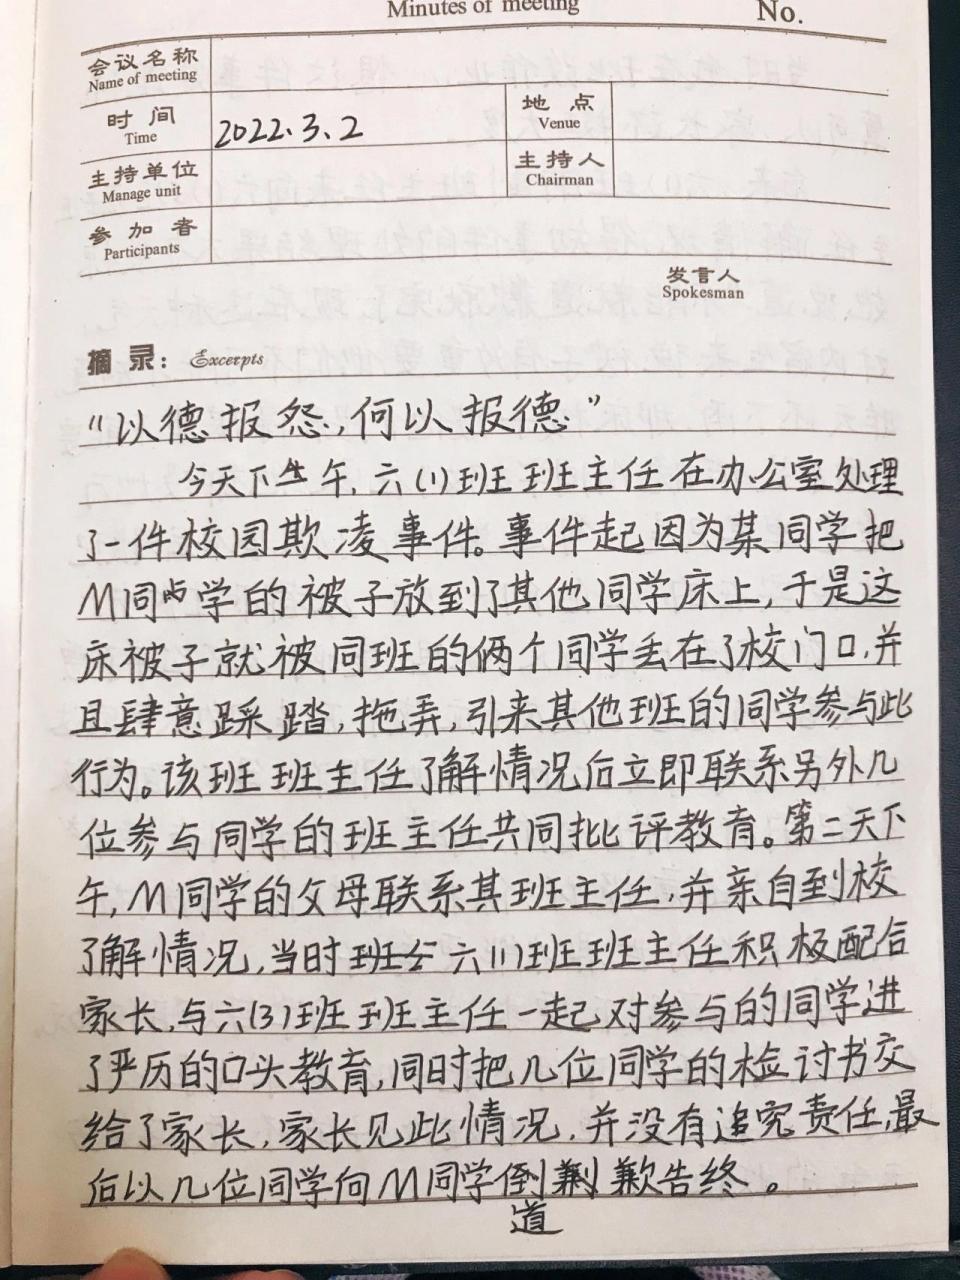 Minutes of meeting
No.
会议名称
Name of meeting
时 间
Time
2022.3.2
地 点
Venue
主持单位
Manage unit
主持人
Chairman
参加者
Participants
发言人
Spokesman
摘录: Excerpts
“以德报怨,何以报德”
今天下午,六(1)班班主任在办公室处理
了一件校园欺凌事件。事件起因为某同学把
M同学的被子放到了其他同学床上,于是这
床被子就被同班的俩个同学丢在了校门口,并
且肆意踩踏,拖弄,引来其他班的同学参与此
行为。该班班主任了解情况后立即联系另外几
位参与同学的班主任共同批评教育。第二天下
午,M同学的父母联系其班主任,并亲自到校
了解情况,当时六(1)班班主任积极配合
家长,与六(3)班班主任一起对参与的同学进
了严历的口头教育,同时把几位同学的检讨书交
给了家长,家长见此情况,并没有追究责任,最
后以几位同学向M同学道歉告终。